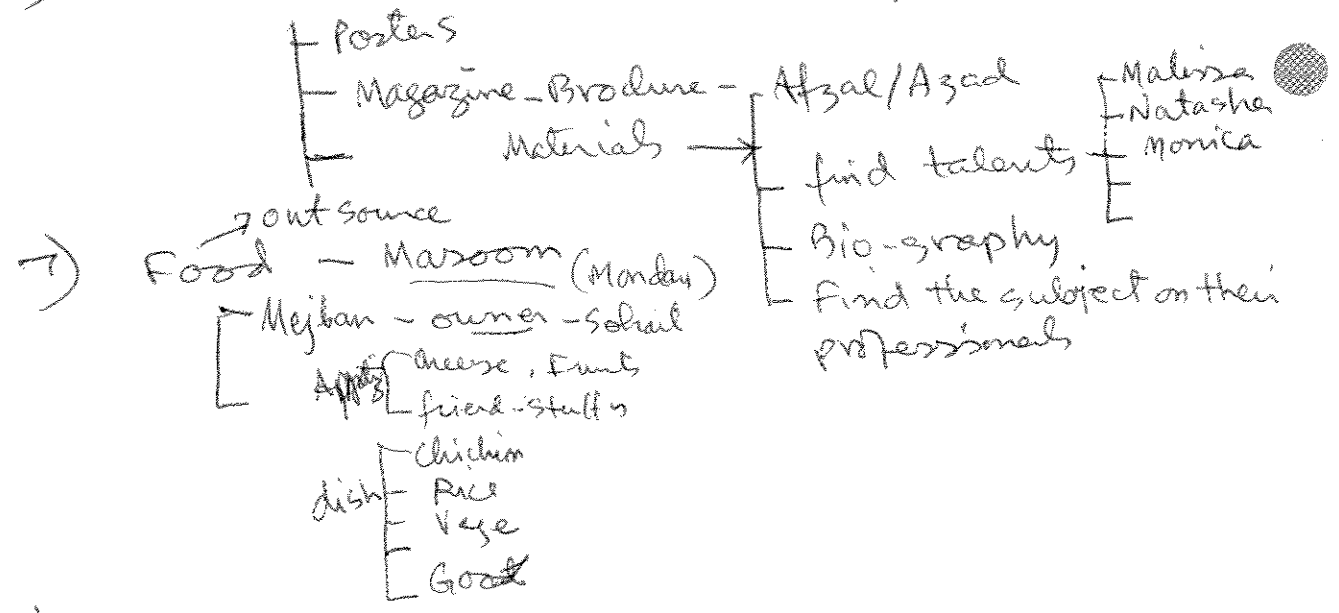 Posters
Magazine - Brochure - Afzal/Azad
Materials →
find talents
Malissa
Natasha
Monica
Bio-graphy
Find the subject on their
professionals
→ out source
7) Food - Masoom (Monday)
Mejban - owner - Sohail
Appitiz
cheese, Fruits
friend-stuffs
dish
Chichin
Rice
Vege
Goat